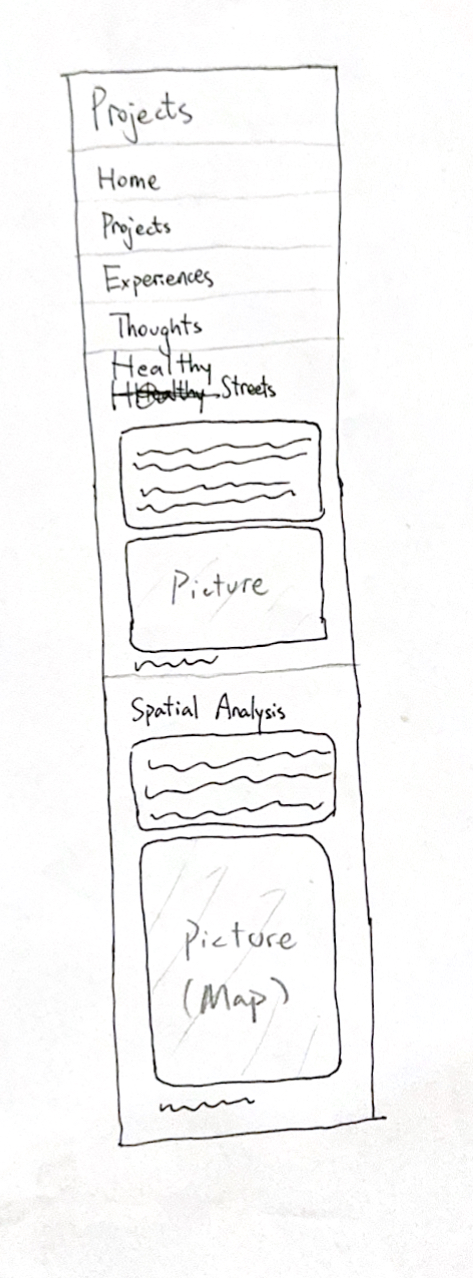 Projects
Home
Projects
Experiences
Thoughts
Healthy
Streets
Picture
Spatial Analysis
Picture
(Map)